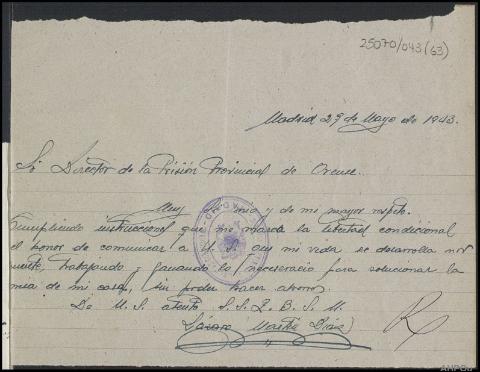 25070/043(63)
Madrid 29 de Mayo de 1943.
Sr Director de la Prisión Provincial de Orense.
Muy Sr mio y de mi mayor respeto.
Cumpliendo instrucciones que me marca la libertad condicional
el honor de comunicar a U. S. que mi vida se desarrolla nor
mente, trabajando y ganando lo necesario para solucionar la
mia de mi casa, sin poder hacer ahorros.
De U. S. atento S. S. Q. B. S. M.
Díaz